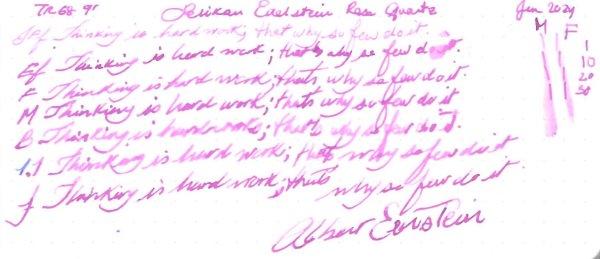 TR68 gr Pelikan Edelstein Rose Quartz Jan 2024
M F
Ef Thinking is hard work; that why so few do it.
Ef Thinking is hard work; that's why so few do it
F Thinking is hard work; thats why so few do it.
M Thinking is hard work; thats why so few do it
B Thinking is hard work; that's why so few do it.
1.1 Thinking is hard work; thats why so few do it
f Thinking is hard work; thats why so few do it
Albert Einstein
1
10
20
50